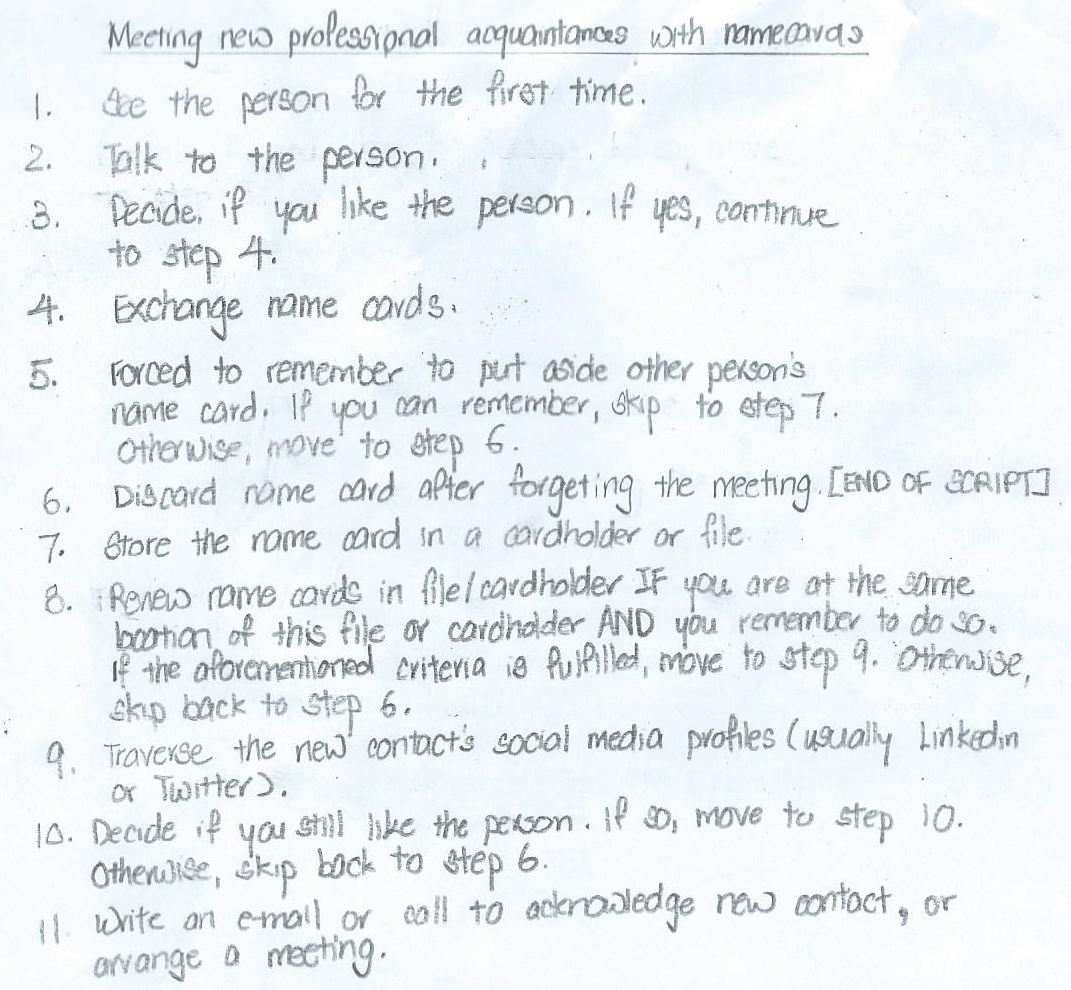 Meeting new professional acquaintances with namecards
1. See the person for the first time.
2. Talk to the person.
3. Decide. if you like the person. If yes, continue
to step 4.
4. Exchange name cards.
5. Forced to remember to put aside other person's
name card. If you can remember, skip to step 7.
Otherwise, move to step 6.
6. Discard name card after forgeting the meeting. [END OF SCRIPT]
7. Store the name card in a cardholder or file.
8. Renew name cards in file/cardholder IF you are at the same
location of this file or cardholder AND you remember to do so.
If the aforementioned criteria is fulfilled, move to step 9. Otherwise,
skip back to step 6.
9. Traverse the new contact's social media profiles (usually Linkedin
or Twitter).
10. Decide if you still like the person. If so, move to step 10.
Otherwise, skip back to step 6.
11. Write an e-mail or call to acknowledge new contact, or
arrange a meeting.